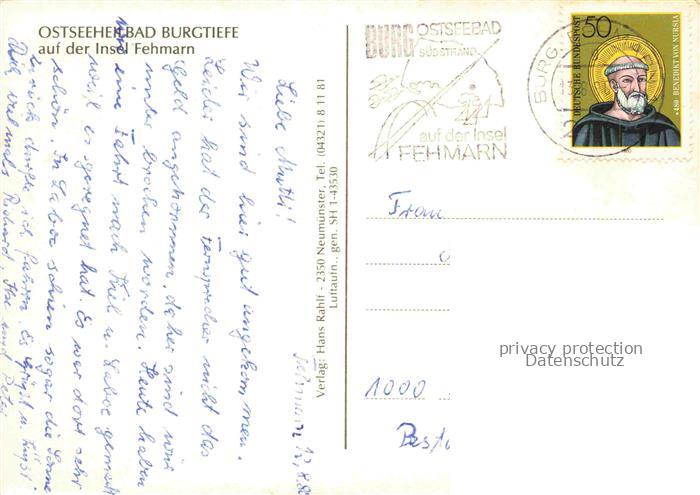 OSTSEEHEILBAD BURGTIEFE
auf der Insel Fehmarn
Fehmarn 13,8.8
Liebe Mutti!
Wir sind hier gut angekommen.
Leider hat der Fernsprecher nicht das
Geld angenommen, daher sind wir
unterbrochen worden. Heute haben
wir eine Fahrt nach Kiel u. Laboe gemacht
weil es geregnet hat. Es war dort sehr
schön. In Laboe schien sogar die Sonne
durfte ich fahren. Es grüßt u. küßt
Dich vielmals Richard, Ilse und Peter
Verlag: Hans Rahlf - 2350 Neumünster, Tel. (04321) 8 11 81
Luftaufn., gen. SH 1-43530
BURG OSTSEEBAD
SÜDSTRAND
auf der Insel
FEHMARN
BURG
50
DEUTSCHE BUNDESPOST
*480 BENEDIKT VON NURSIA
Frau
1000
privacy protection
Datenschutz